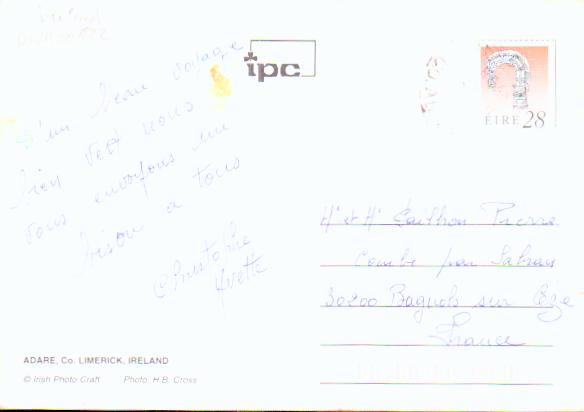 ipc
D'un beau voyage
bien vert nous
vous envoyons un
bisou a tous
Christophe
Yvette
ÉIRE 28
Pierre
Combe par Sabran
30200 Bagnols sur Cèze
France
ADARE, Co. LIMERICK, IRELAND
© Irish Photo Craft Photo: H.B. Cross